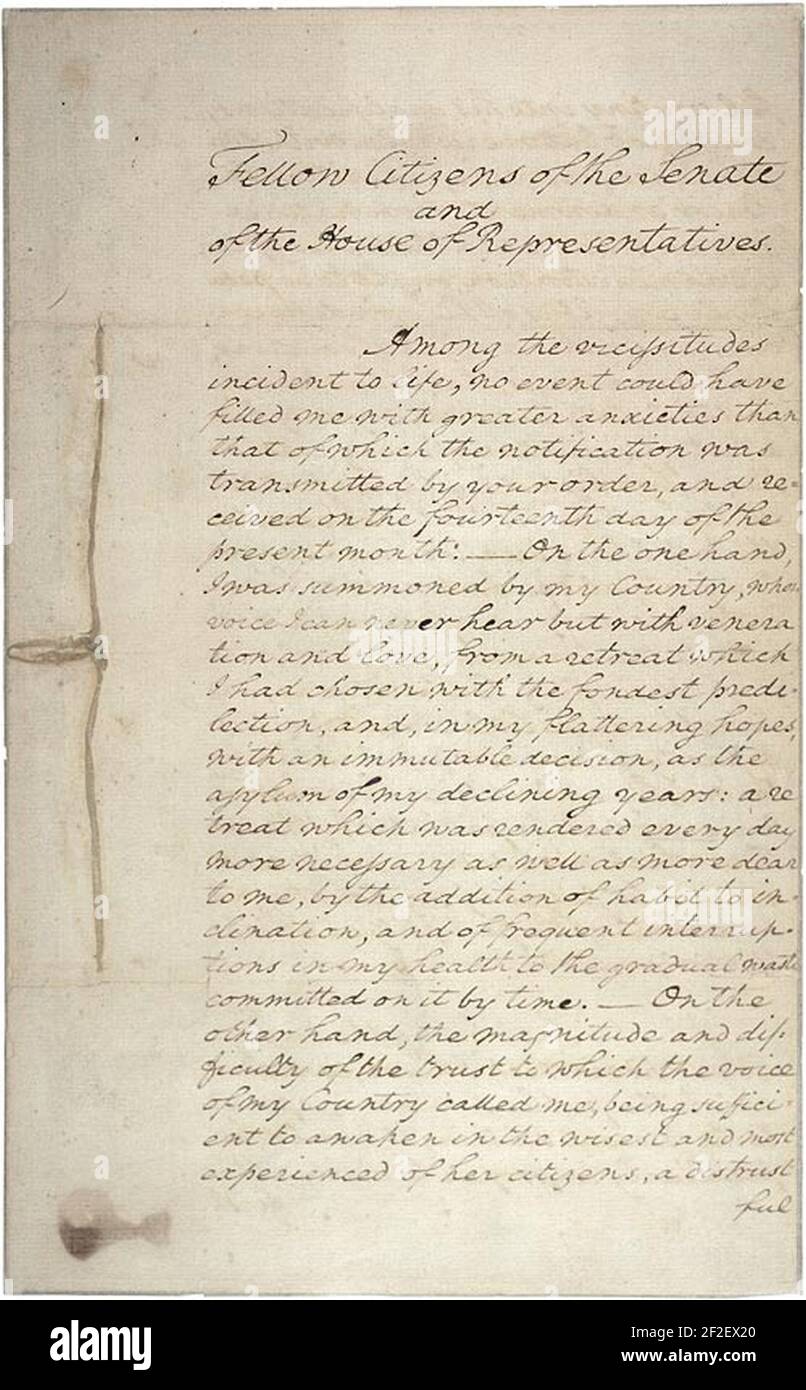 Fellow Citizens of the Senate
and
of the House of Representatives.
Among the vicissitudes
incident to life, no event could have
filled me with greater anxieties than
that of which the notification was
transmitted by your order, and re=
ceived on the fourteenth day of the
present month: — On the one hand,
I was summoned by my Country, whose
voice I can never hear but with venera
tion and love, from a retreat which
I had chosen with the fondest predi-
lection, and, in my flattering hopes,
with an immutable decision, as the
asylum of my declining years: a re
treat which was rendered every day
more necessary as well as more dear
to me, by the addition of habit to in-
clination, and of frequent interrup-
tions in my health to the gradual waste
committed on it by time. — On the
other hand, the magnitude and dif-
ficulty of the trust to which the voice
of my Country called me, being suffici-
ent to awaken in the wisest and most
experienced of her citizens, a distrust
ful
a
alamy
alamy
Image ID: 2F2EX20
www.alamy.com